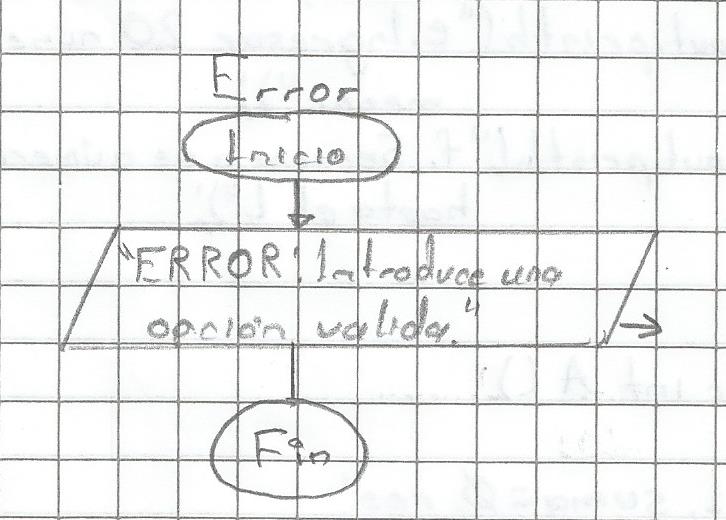 Error
Inicio
"ERROR! Introduce una
opción valida."
Fin